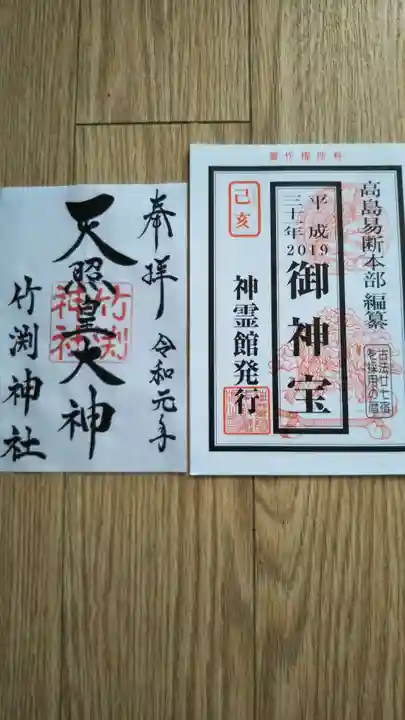 奉拝
令和元年
天照皇大神
竹渕神社
竹渕神社
著作権所有
高島易断本部編纂
古法廿七宿
を採用の暦
平成
三十一年
2019
御神宝
己亥
神霊館発行